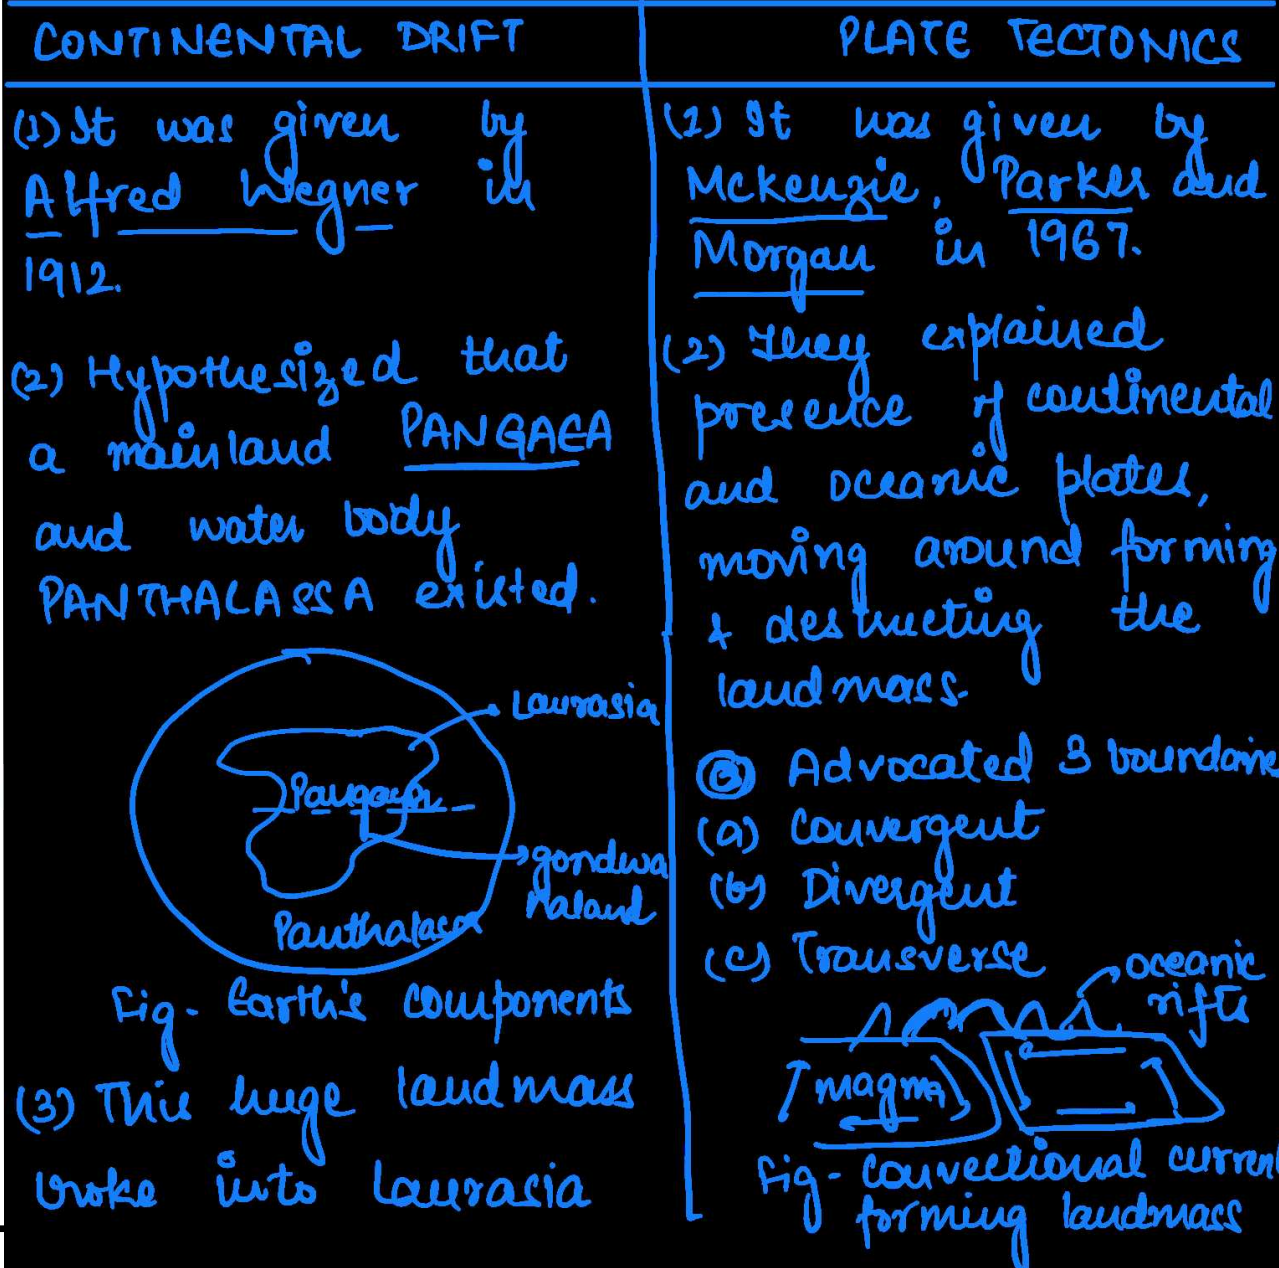 CONTINENTAL DRIFT
(1) It was given by
Alfred Wegner in
1912.
(2) Hypothesized that
a mainland PANGAEA
and water body
PANTHALASSA existed.
Laurasia
Pangaea
gondwa
naland
Panthalassa
Fig- Earth's components
(3) This huge landmass
broke into Laurasia
PLATE TECTONICS
(1) It was given by
Mckenzie, Parker and
Morgan in 1967.
(2) They explained
presence of continental
and oceanic plates,
moving around forming
& destructing the
landmass.
(3) Advocated 3 boundarie
(a) Convergent
(b) Divergent
(c) Transverse
oceanic
rifts
magma
Fig- convectional current
forming landmass